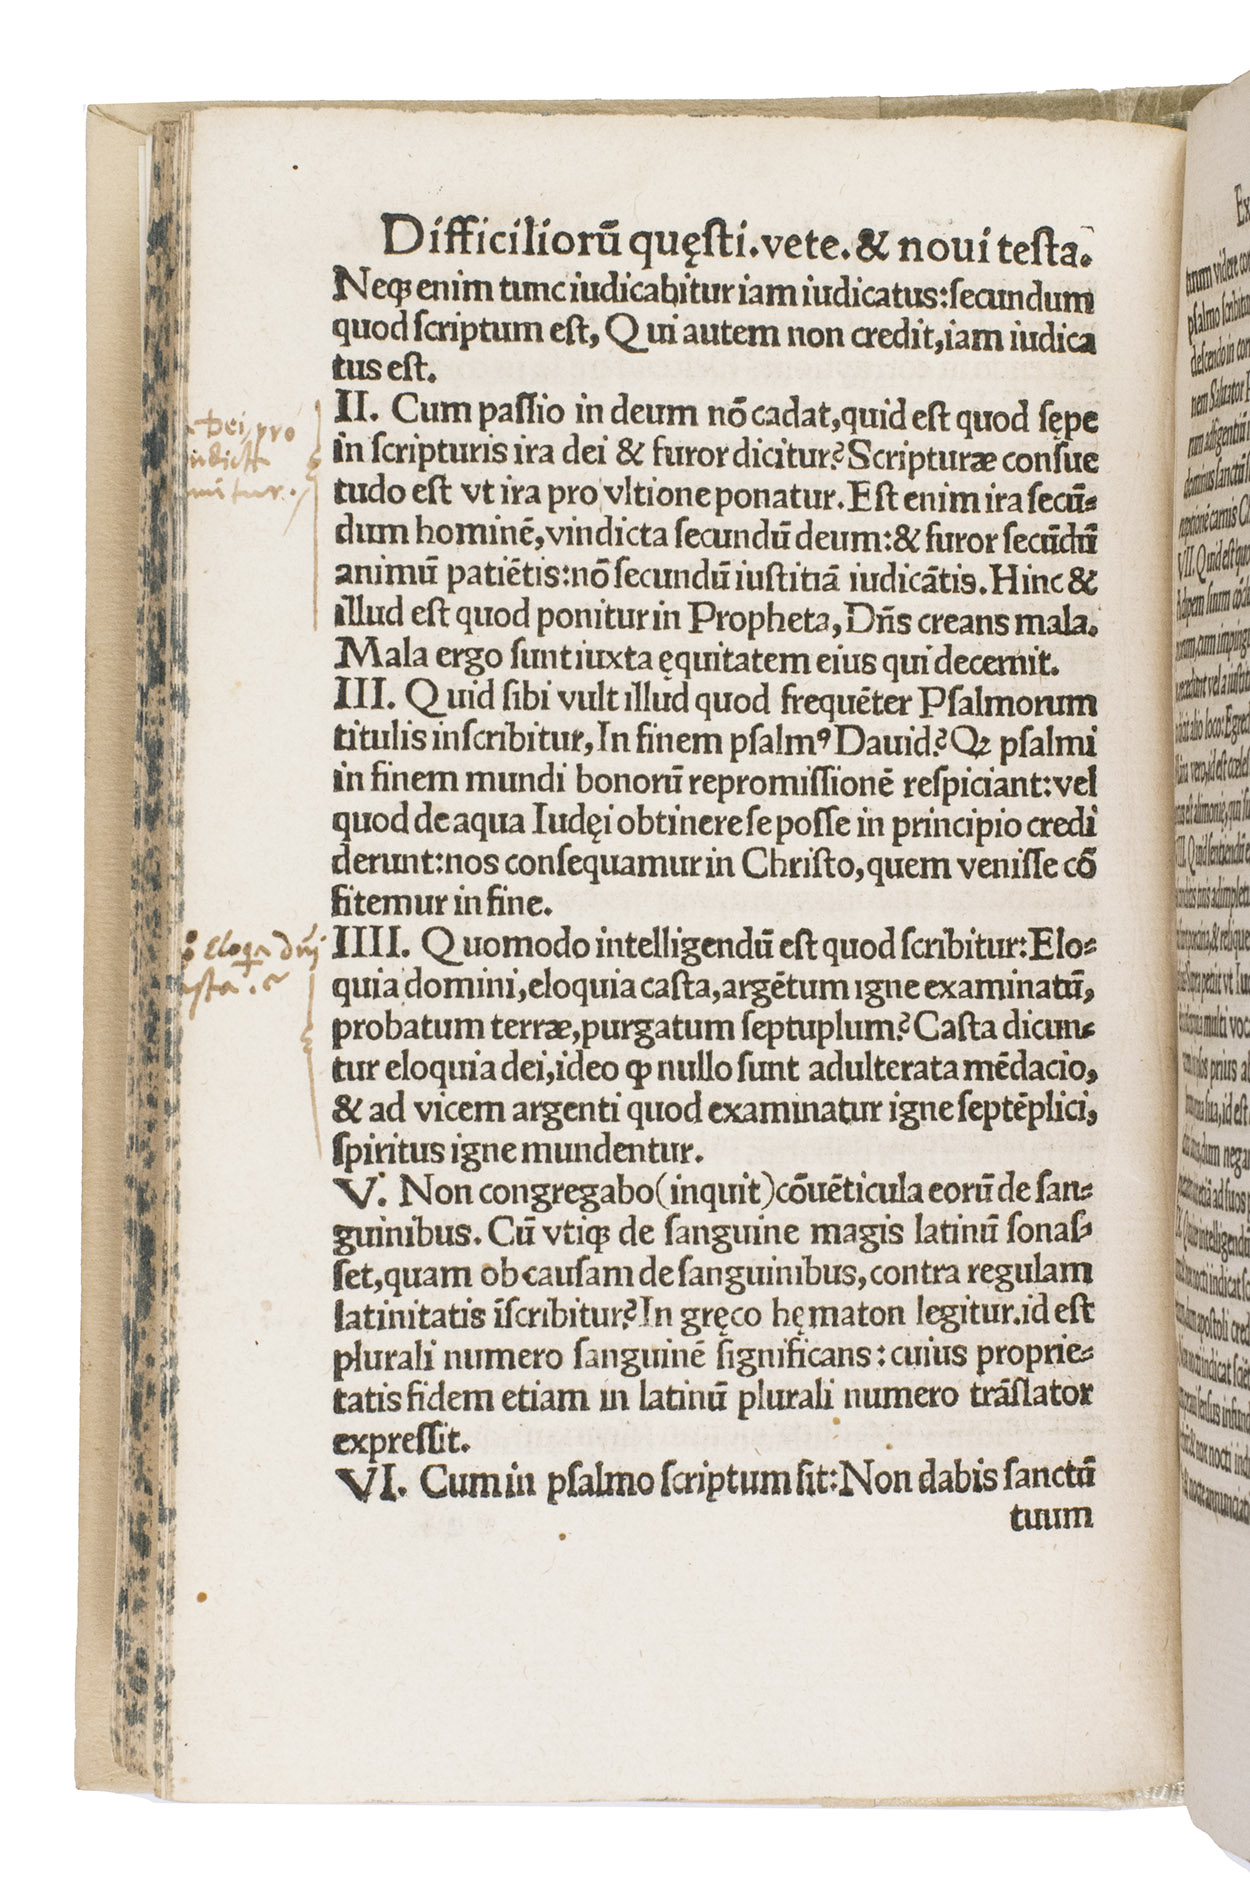 Difficiliorū quęsti.vete.& noui testa.
Neqꝫ enim tunc iudicabitur iam iudicatus:secundum
quod scriptum est, Qui autem non credit,iam iudica
tus est.
II. Cum passio in deum nō cadat,quid est quod sępe
in scripturis ira dei & furor dicitur? Scripturæ consue
tudo est vt ira pro vltione ponatur. Est enim ira secū-
dum hominē,vindicta secundū deum:& furor secūdū
animū patiētis:nō secundū iustitiā iudicātis. Hinc &
illud est quod ponitur in Propheta, Dñs creans mala.
Mala ergo sunt iuxta ęquitatem eius qui decernit.
III. Quid sibi vult illud quod frequēter Psalmorum
titulis inscribitur, In finem psalmꝰ Dauid? Qꝫ psalmi
in finem mundi bonorū repromissionē respiciant:vel
quod de aqua Iudęi obtinere se posse in principio credi
derunt:nos consequamur in Christo,quem venisse cō
fitemur in fine.
IIII. Quomodo intelligendū est quod scribitur:Elo-
quia domini,eloquia casta,argētum igne examinatū,
probatum terræ,purgatum septuplum? Casta dicun-
tur eloquia dei,ideo ꝙ nullo sunt adulterata mēdacio,
& ad vicem argenti quod examinatur igne septēplici,
spiritus igne mundentur.
V. Non congregabo(inquit)cōuēticula eorū de san-
guinibus. Cū vtiqꝫ de sanguine magis latinū sonas-
set,quam ob causam de sanguinibus,contra regulam
latinitatis īscribitur? In gręco hęmaton legitur.id est
plurali numero sanguinē significans: cuius proprie-
tatis fidem etiam in latinū plurali numero trāslator
expressit.
VI. Cum in psalmo scriptum sit: Non dabis sanctū
tuum
Dei pro
eloqa dñi